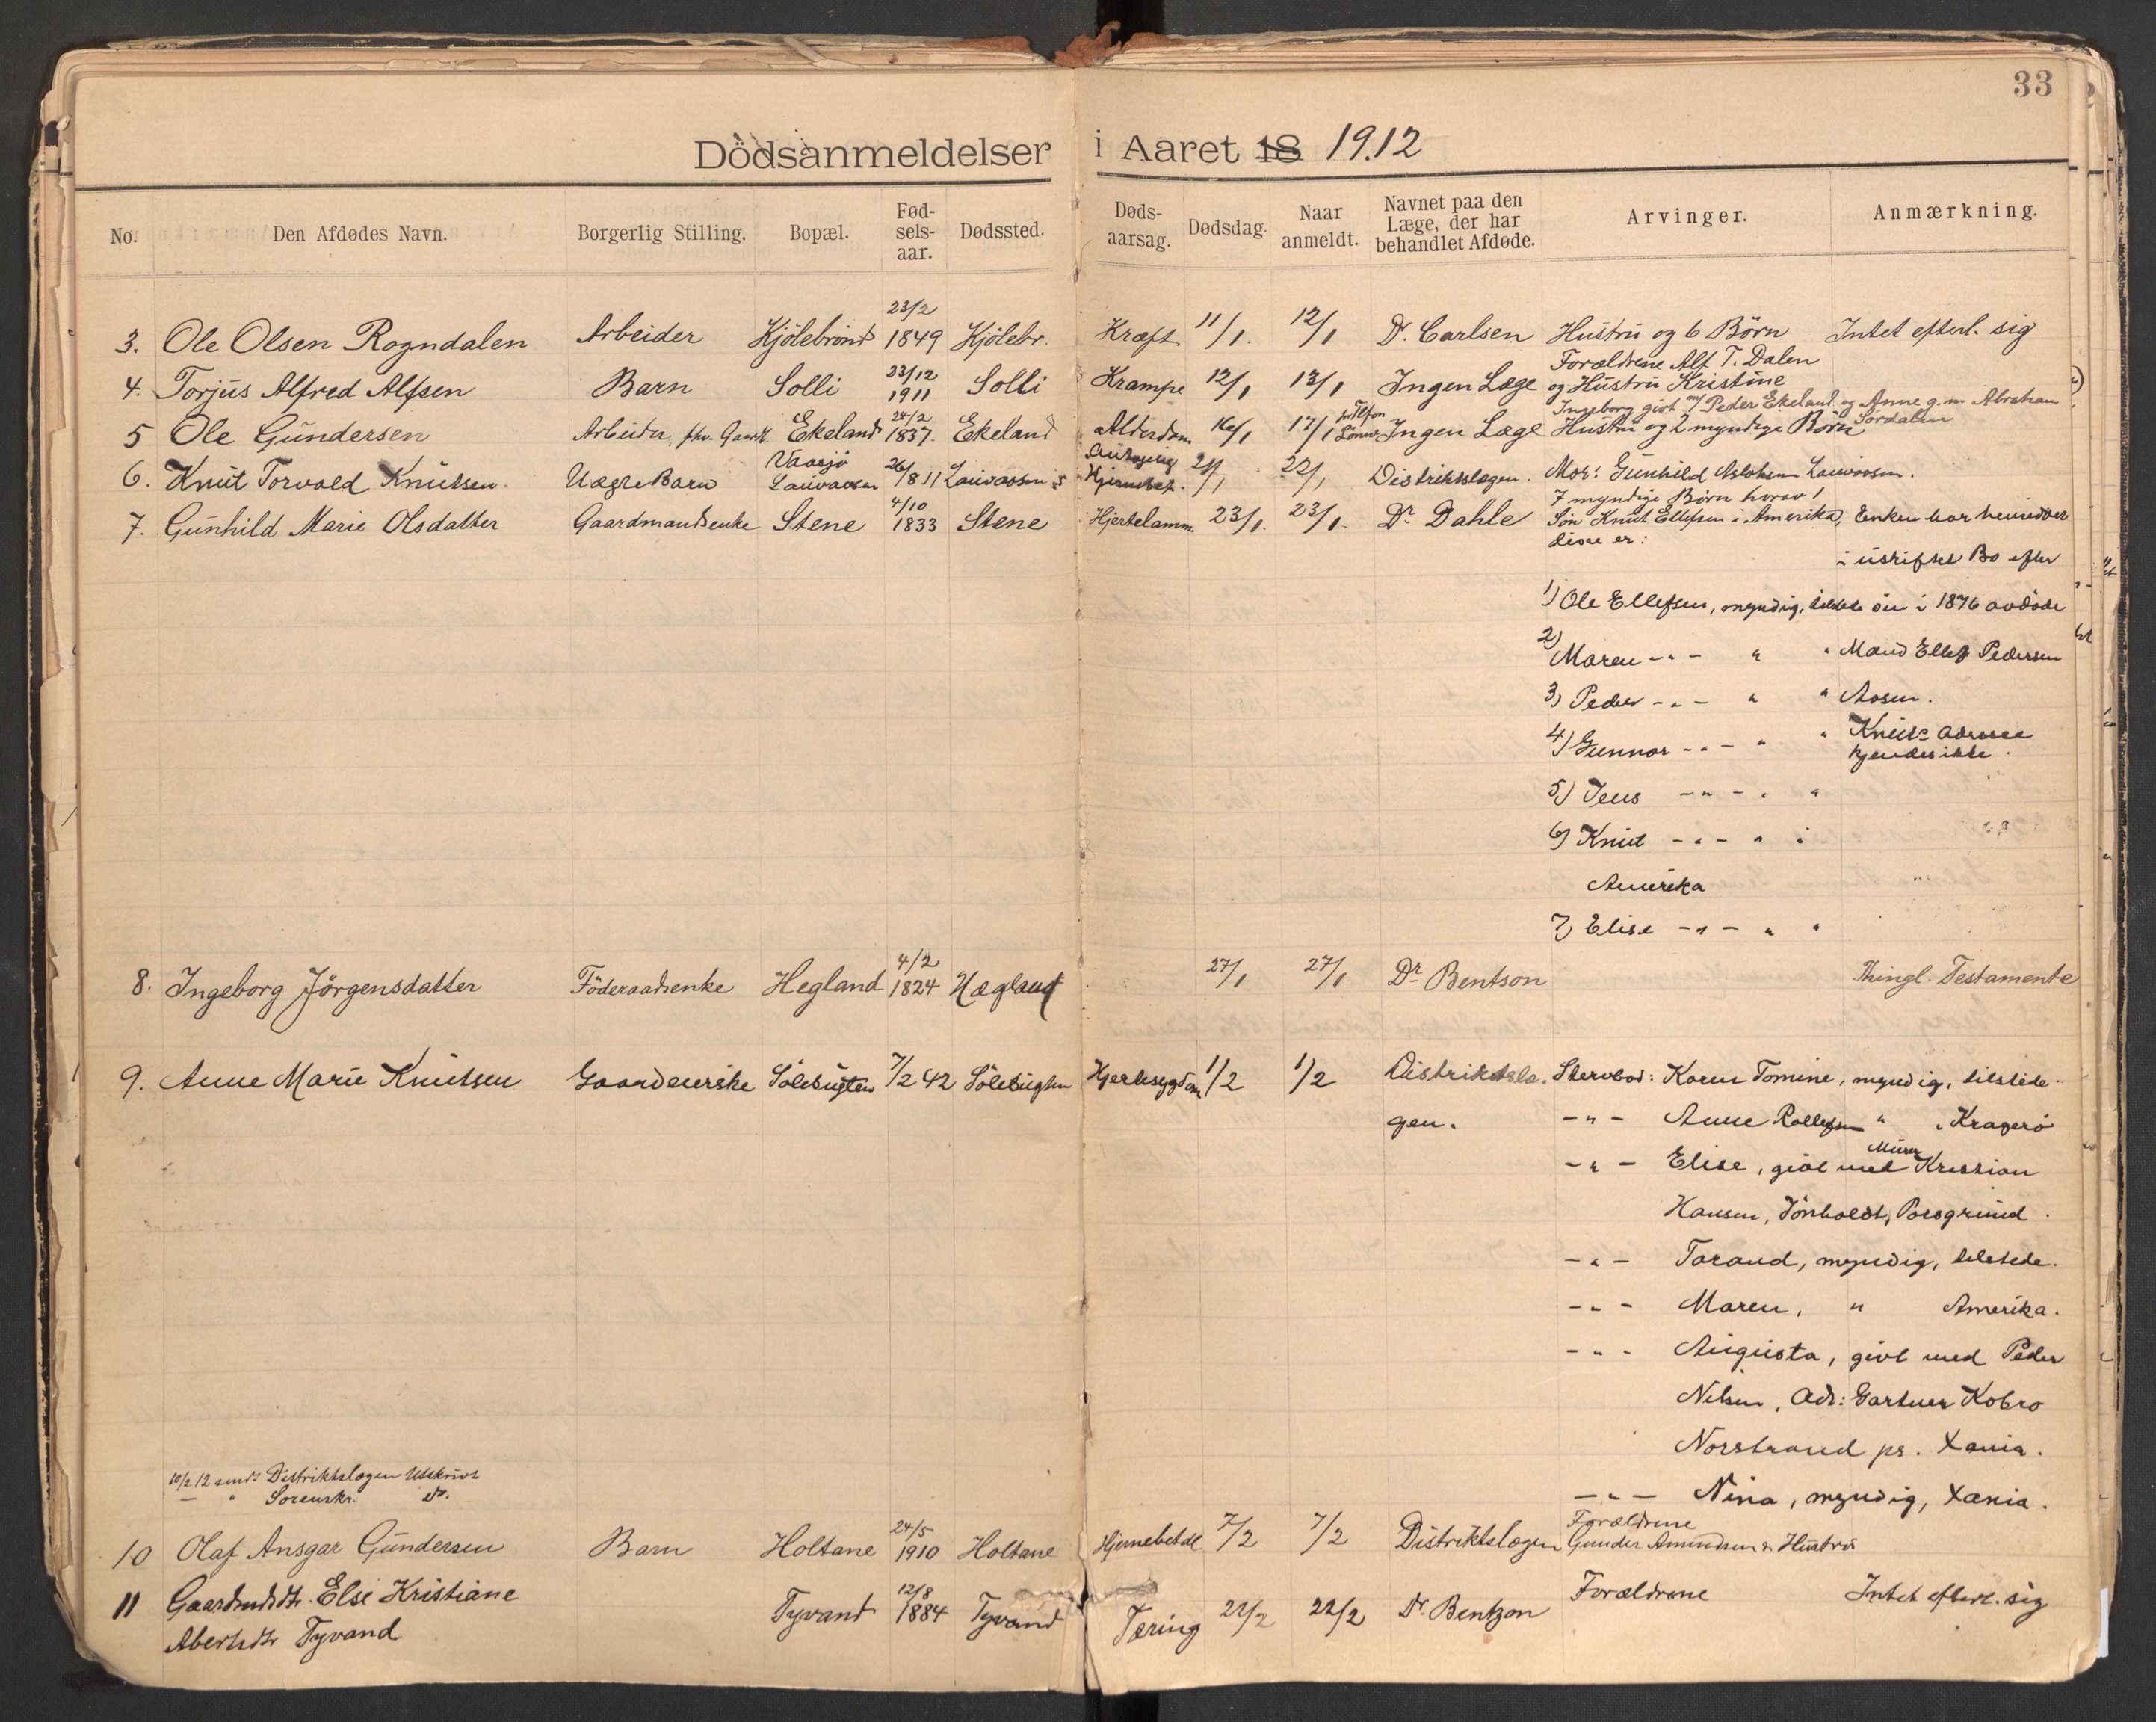 33
Dödsanmeldelser i Aaret 18 1912
No. Den Afdødes Navn. Borgerlig Stilling. Bopæl. Fød-sels-aar. Dødssted. Døds-aarsag. Dødsdag. Naar anmeldt. Navnet paa den Læge, der har behandlet Afdøde. Arvinger. Anmærkning.
3. Ole Olsen Rogndalen Arbeider Kjölebrönd 23/2 1849 Kjölebr. Kræft 11/1. 12/1 Dr. Carlsen Hustru og 6 Börn Intet efterl. sig
4. Torjus Alfred Alfsen Barn Solli 23/12 1911 Solli Krampe 12/1 13/1 Ingen Læge Forældrene Alf T. Dalen
og Hustru Kristine
Ingeborg givt m/ Peder Ekeland og Anne g. m. Abraham
Sördalen
5 Ole Gundersen Arbeider, fhv. Gaardt. Ekeland 24/2 1837. Ekeland Alderdom 16/1 17/1 Ingen Læge Hustru og 2 myndige Börn
6. Knut Torvald Knutsen. Uægte Barn Vaasjö Lauvaasen 26/8 11 Lauvaasen 21/1 22/1 Distriktslægen. Mor: Gunhild Aslaksen Lauvaasen.
7. Gunhild Marie Olsdatter Gaardmandsenke Stene 4/10 1833 Stene Hjertelamm. 23/1. 23/1. Dr Dahle 7 myndige Börn horav 1
Sön Knut Ellefsen i Amerika, Enken har hensiddet
disse er:
i uskiftet Bo efter
1) Ole Ellefsen, myndig, tilstede sin i 1876 avdöde
2) Maren -"- " " Mand Ellef Pedersen
3) Peder -"- " " Aasen.
4) Gunnar -"- " " Knuts adresse
kjendes ikke.
5) Jens -"- " "
6) Knut -"- " i
Amerika
7) Elise -"- " "
8. Ingeborg Jörgensdatter Föderaadsenke Hegland 4/2 1824 Hægland 27/1 27/1 Dr Bentson Thingl. Testamente
9. Anne Marie Knutsen Gaardeierske Sölebugten 7/2 42 Sölebugten Hjertesygdom 1/2 1/2 Distriktslæ- Stervbo: Karen Tomine, myndig, tilstede.
gen. -"- Anne Rollefsen " " Kragerö
-"- Elise, givt med Murer Kristian
Hansen, Tönholdt, Porsgrund.
-"- Torand, myndig, tilstede.
-"- Maren, " Amerika.
-"- Augusta, givt med Peder
Nilsen, Adr: Gartner Kobro
Norstrand pr. Xania.
-"- Nina, myndig, Xania.
10/2 12 sendt Distriktslægen Utskrivt
— " Sorenskr. do.
10 Olaf Ansgar Gundersen Barn Holtane 24/5 1910 Holtane Hjernebetdl. 7/2 7/2 Distriktslægen Forældrene
Gunder Amundsen & Hustru
11 Gaardmdsdtr. Else Kristiane Tyvand 12/8 1884 Tyvand Tæring 21/2 22/2 Dr. Bentzon Forældrene Intet efterl. sig
Abertsdtr Tyvand